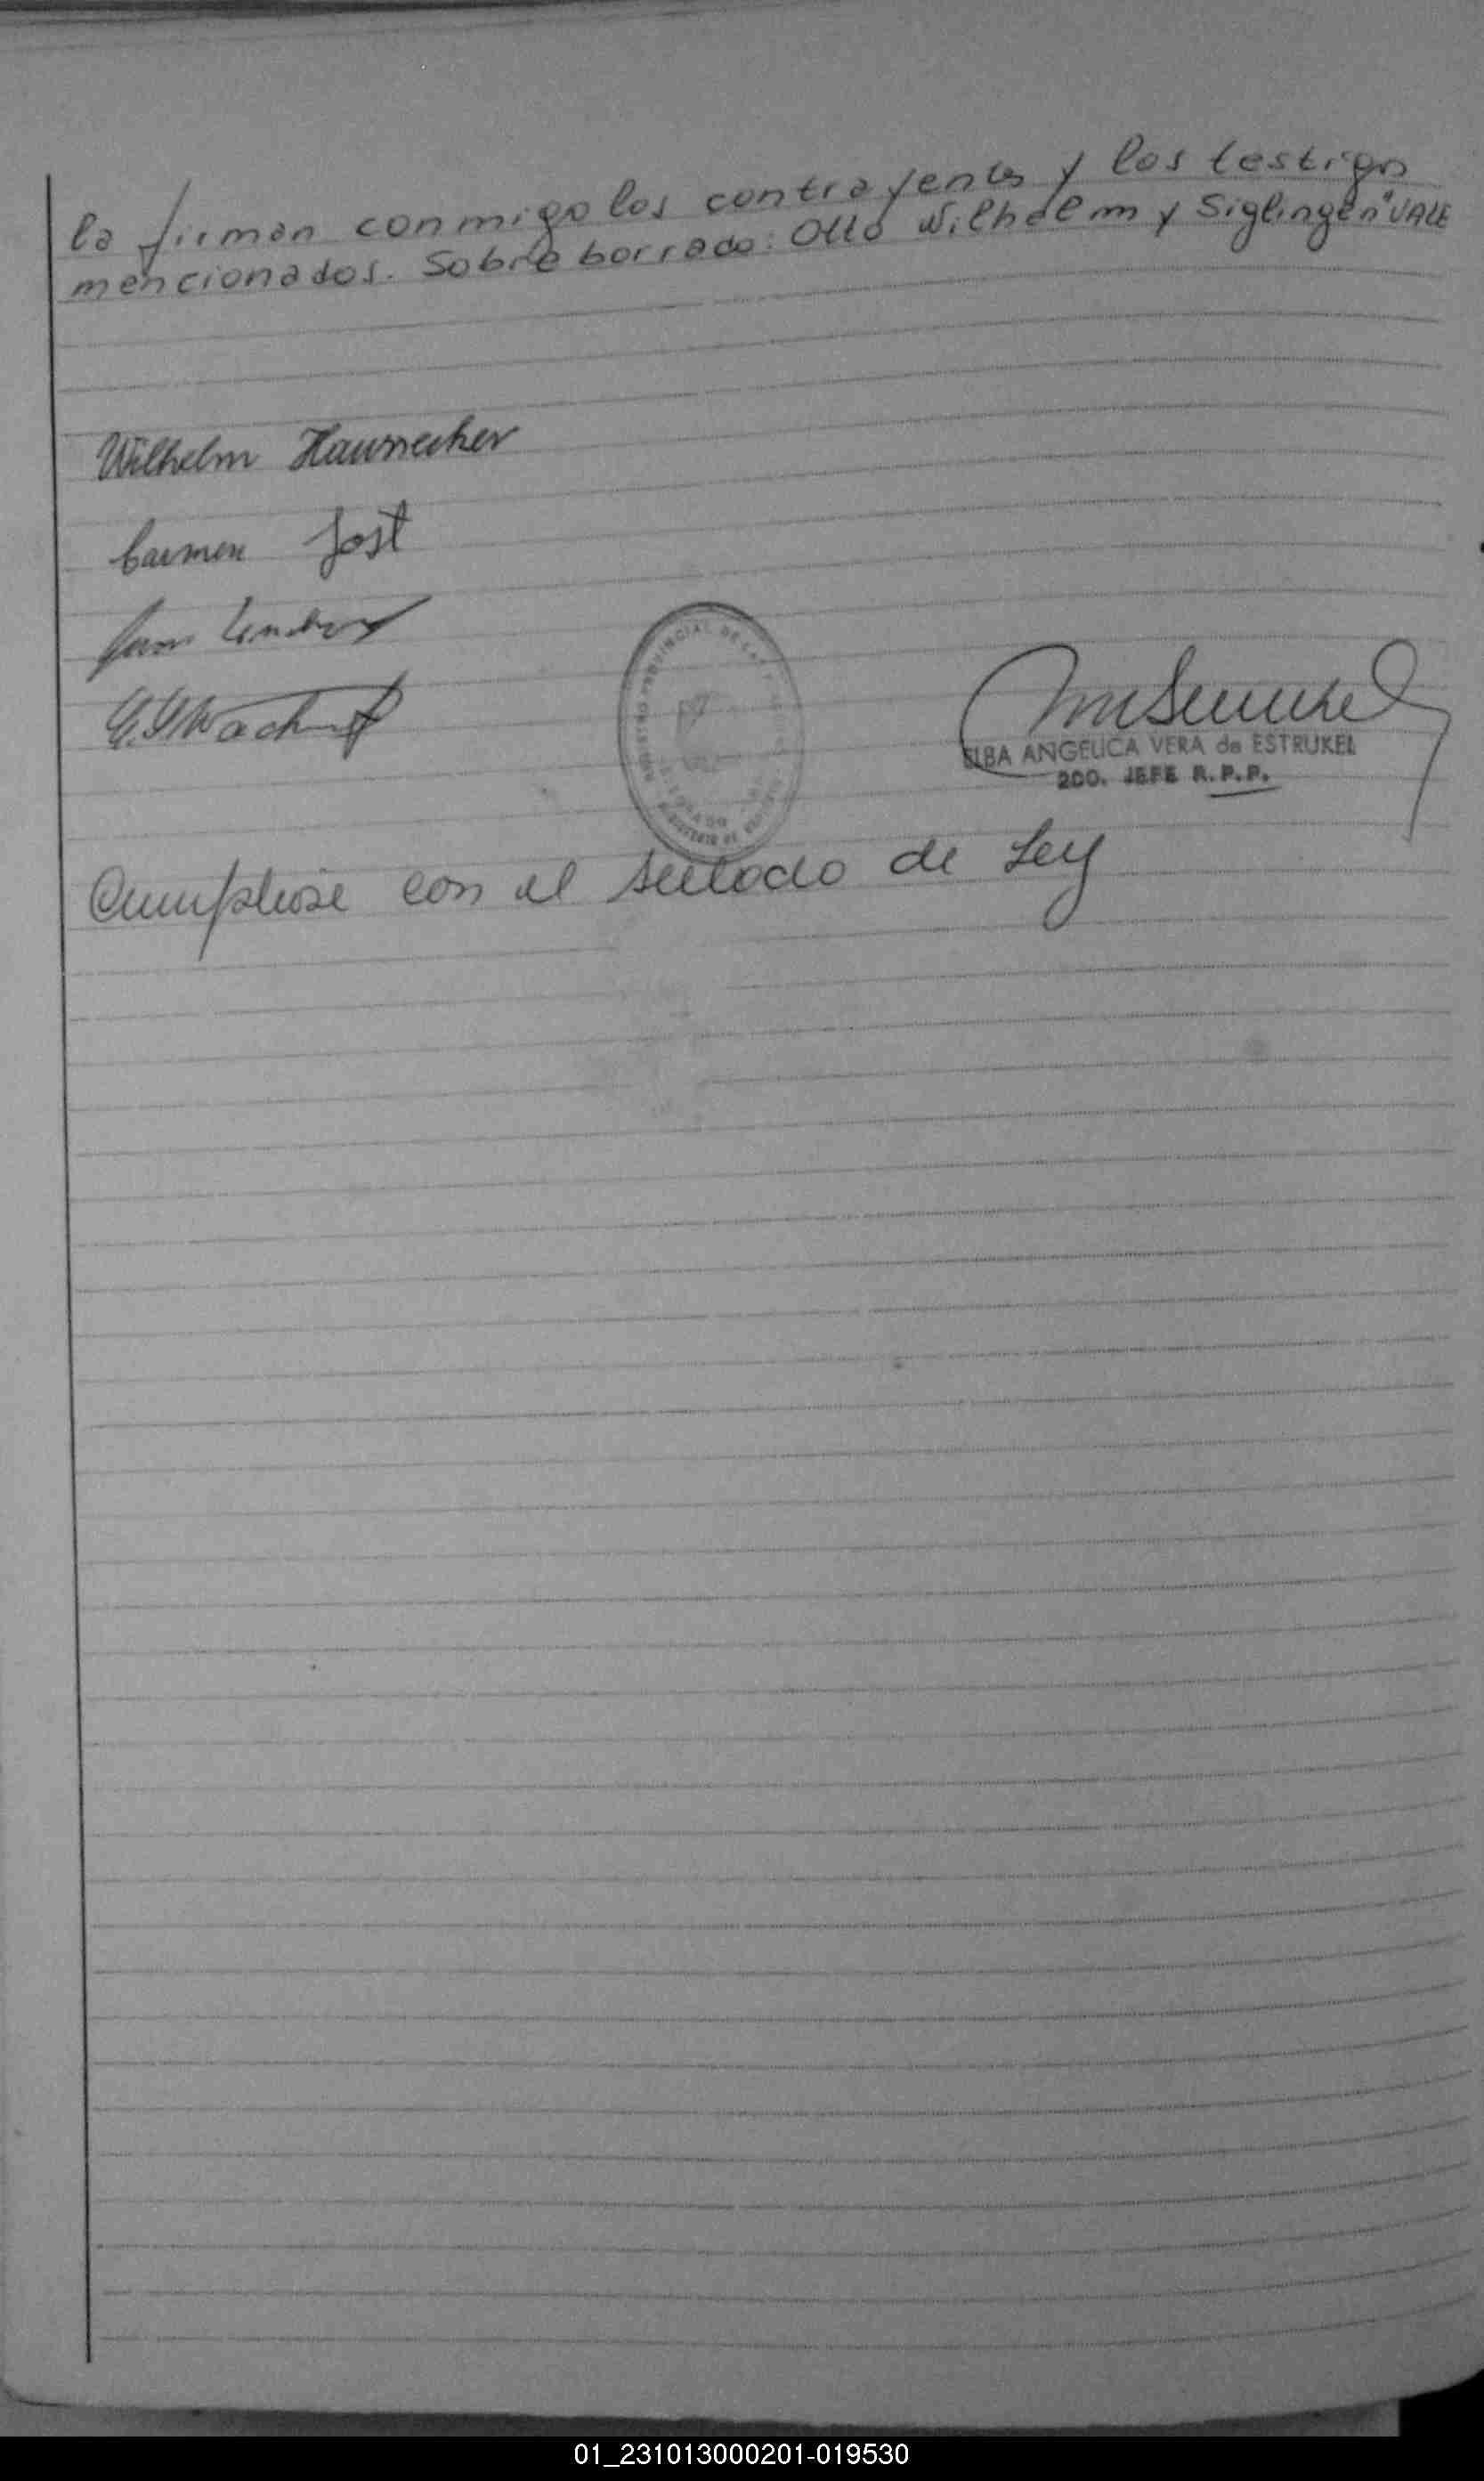 la firman conmigo los contrayentes y los testigos
mencionados. Sobre borrado: Otto Wilhelm y Siglingen" VALE
Wilhelm Haussecker
Carmen Jost
REGISTRO PROVINCIAL DE LAS
ELBA ANGELICA VERA de ESTRUKEL
2DO. JEFE R.P.P.
Cumpliose con el sellado de Ley
01_231013000201-019530